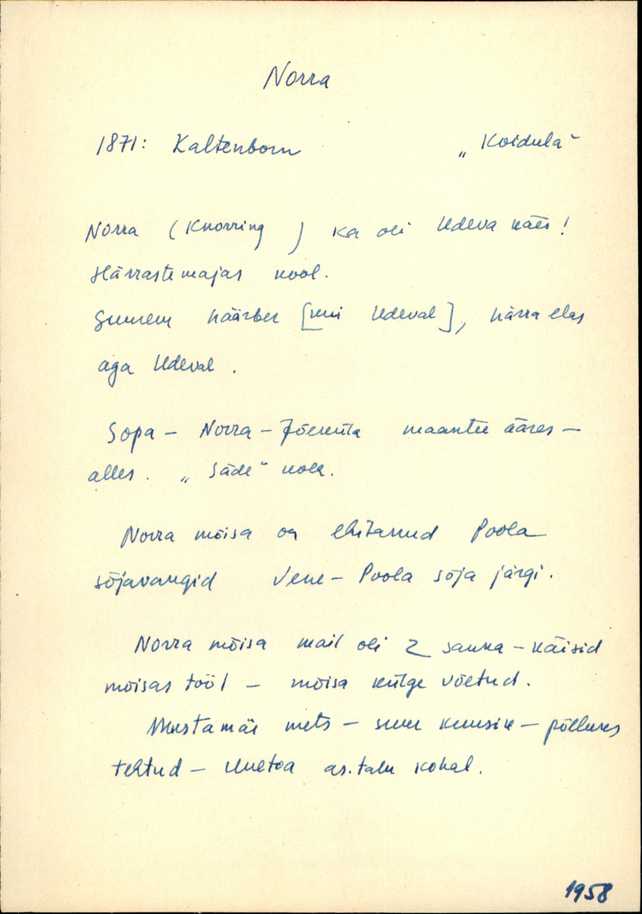 Norra
1871: Kaltenborn „Koidula“
Norra (Knorring ) ka oli Udeva käes!
Härrastemajas kool.
Suurem häärber [kui Udeval], härra elas
aga Udeval.
Sopa – Norra – Jõeküla maantee ääres –
alles. „Säde“ kolh.
Norra mõisa on ehitanud Poola
sõjavangid Vene – Poola sõja järgi.
Norra mõisa mail oli 2 sauna – käisid
mõisas tööl – mõisa külge võetud.
Mustamäe mets – suur kuusik – põlluks
tehtud – as. talu kohal.
1958